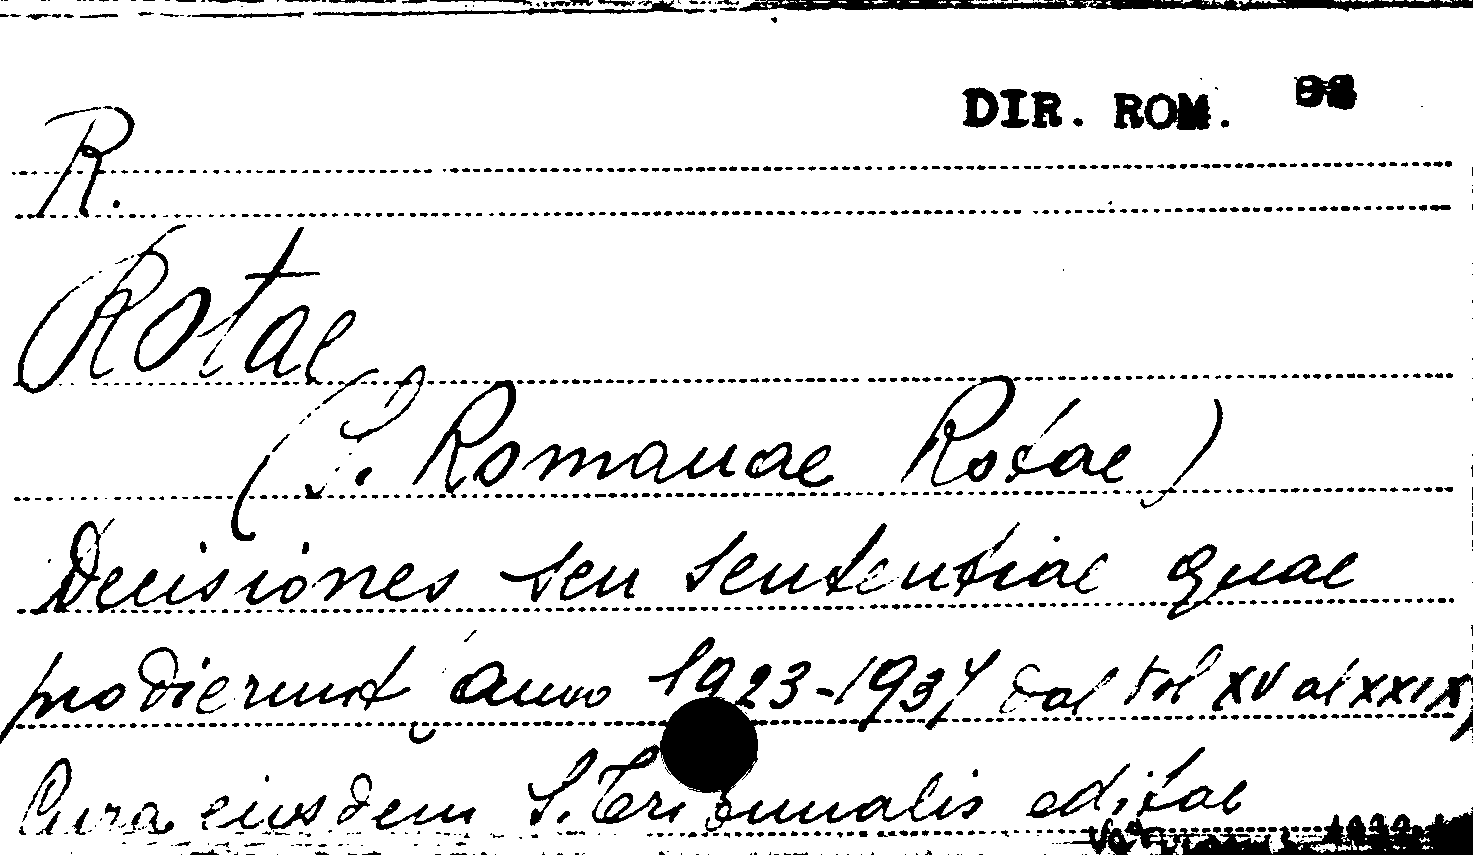 DIR. ROM.
R.
Rotae
(S. Romanae Rotae)
Decisiones seu sententiae quae
prodierunt anno 1923-1937 dal vol XV al XXIX,
Cura eiusdem S. Tribunalis editae